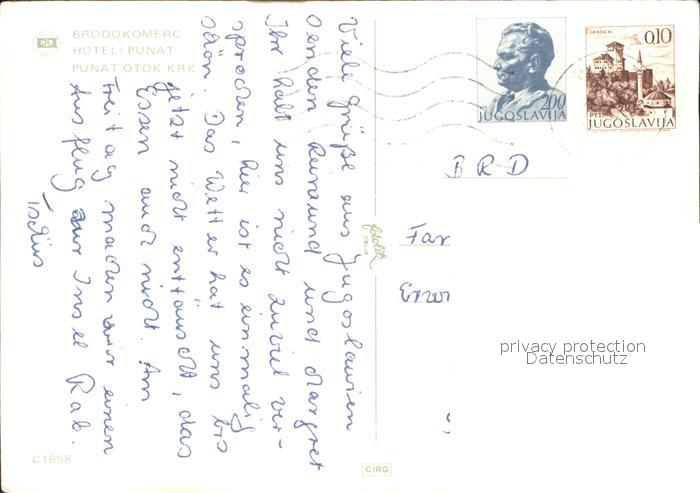 BRODOKOMERC
HOTELI PUNAT
PUNAT OTOK KRK
Viele Grüße aus Jugoslawien
senden Reinaund und Margret
Ihr habt uns nicht zuviel ver-
sprochen, hier ist es einmalig
schön. Das Wetter hat uns bis
jetzt nicht enttäuscht, das
Essen auch nicht. Am
Freitag machen wir einen
Ausflug zur Insel Rab.
Tschüs
PTT
2.00
JUGOSLAVIJA
GRADAČAC
0,10
PTT
JUGOSLAVIJA
BRD
Fam
privacy protection
Datenschutz
C1658
CIRG